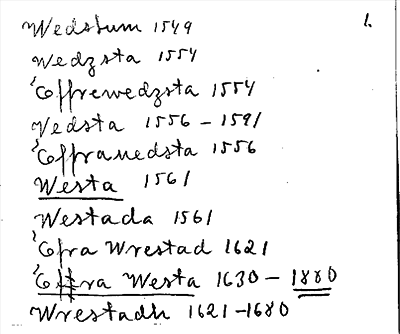 Wedstum 1549 1.
Wedzsta 1554
Öffrewedzsta 1554
Vedsta 1556 - 1591
Öffranedsta 1556
Westa 1561
Westada 1561
Öfra Wrestad 1621
Öfra Westa 1630 - 1880
Wrestadh 1621 - 1680